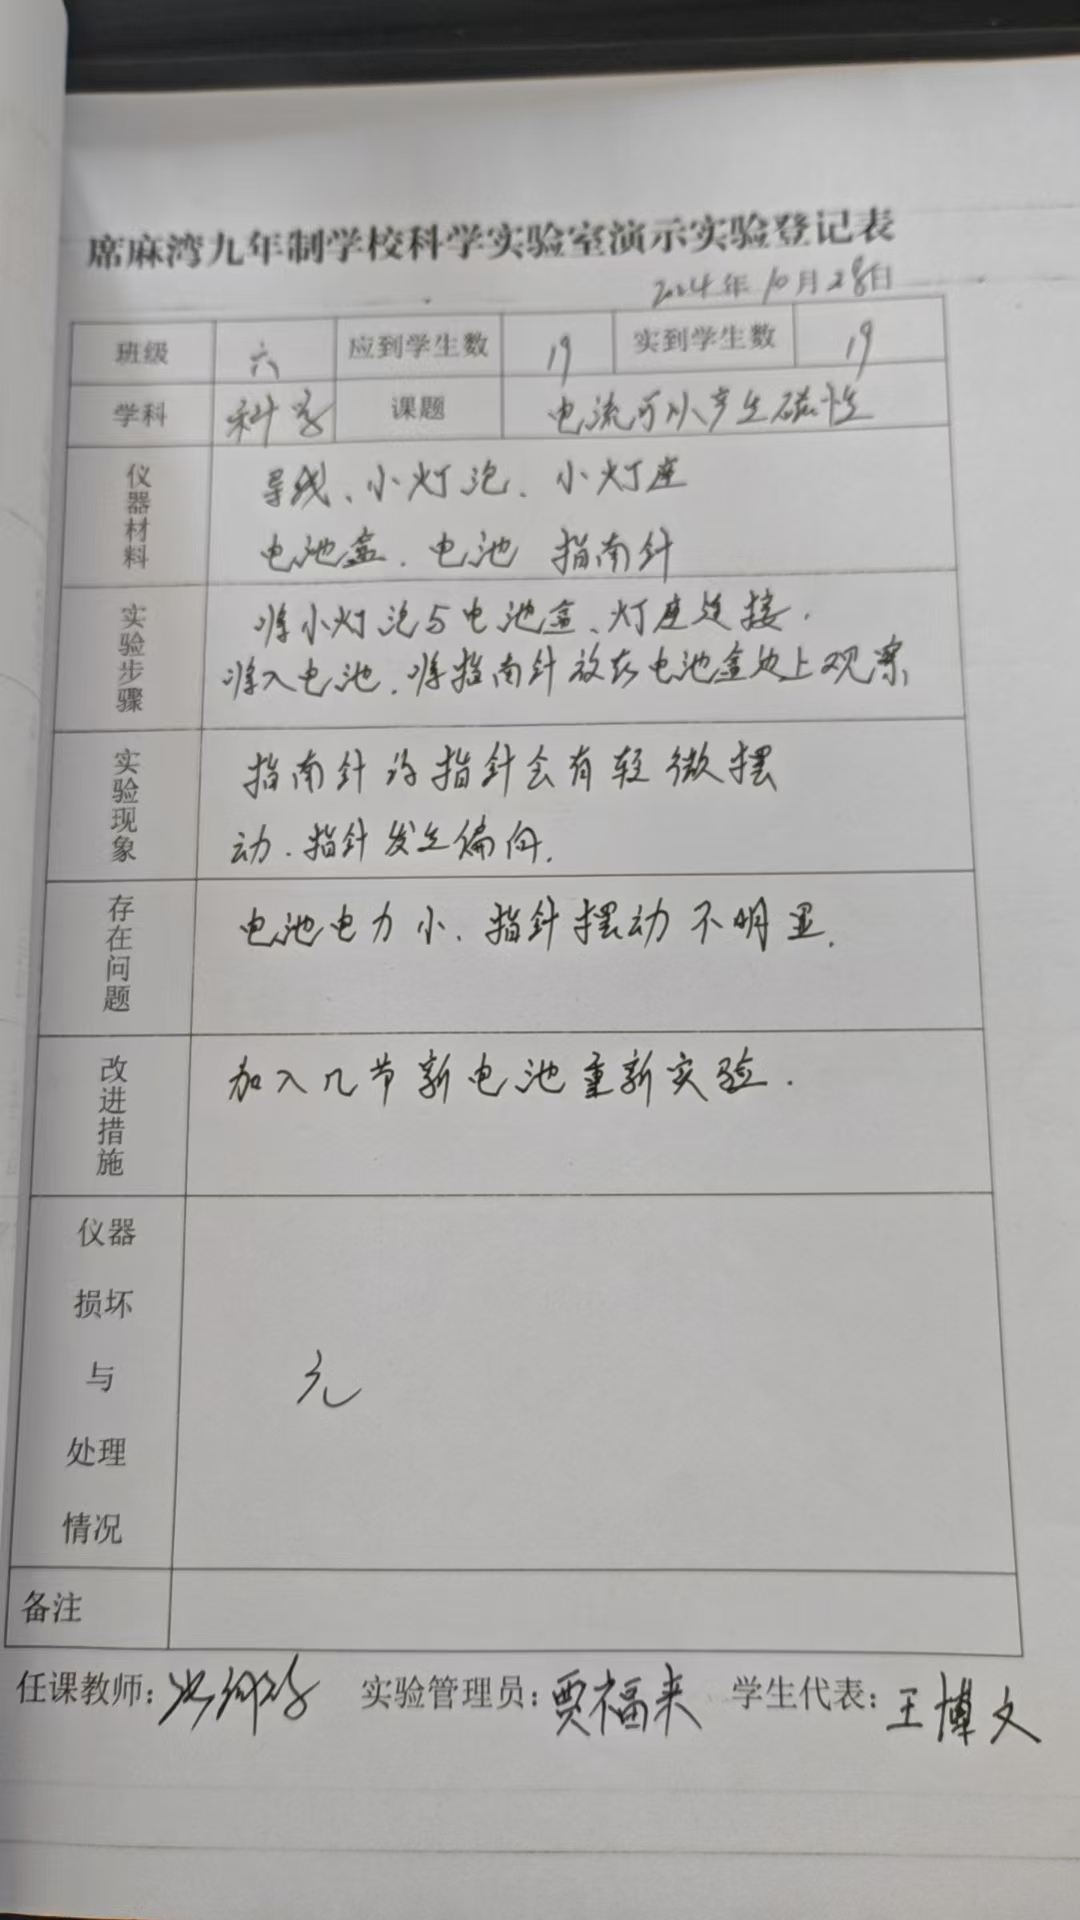 席麻湾九年制学校科学实验室演示实验登记表
2024年10月28日
班级 六 应到学生数 19 实到学生数 19
学科 科学 课题 电流可以产生磁性
仪器材料
导线、小灯泡、小灯座
电池盒、电池 指南针
实验步骤
将小灯泡与电池盒、灯座连接.
将入电池、将指南针放在电池盒边上观察
实验现象
指南针的指针会有轻微摆
动、指针发生偏向.
存在问题
电池电力小、指针摆动不明显.
改进措施
加入几节新电池重新实验.
仪器
损坏
与
处理
情况
无
备注
任课教师: 实验管理员:贾福来 学生代表:王博文